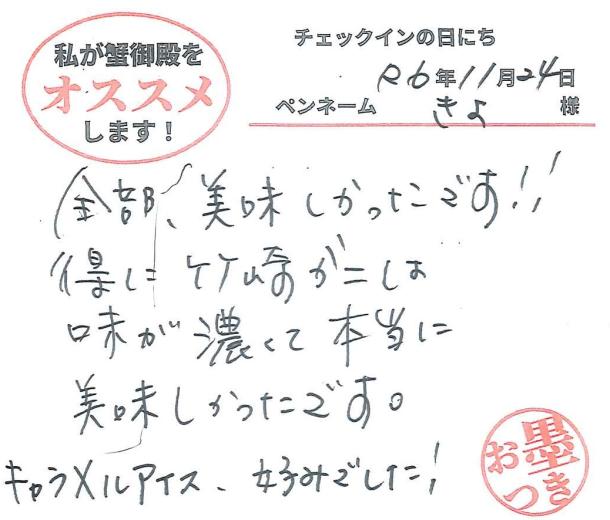 私が蟹御殿を
オススメ
します！
チェックインの日にち
R6年11月24日
ペンネーム きよ 様
全部、美味しかったです!!
得に竹崎がには
味が濃くて本当に
美味しかったです。
キャラメルアイス、好みでした!
お墨つき